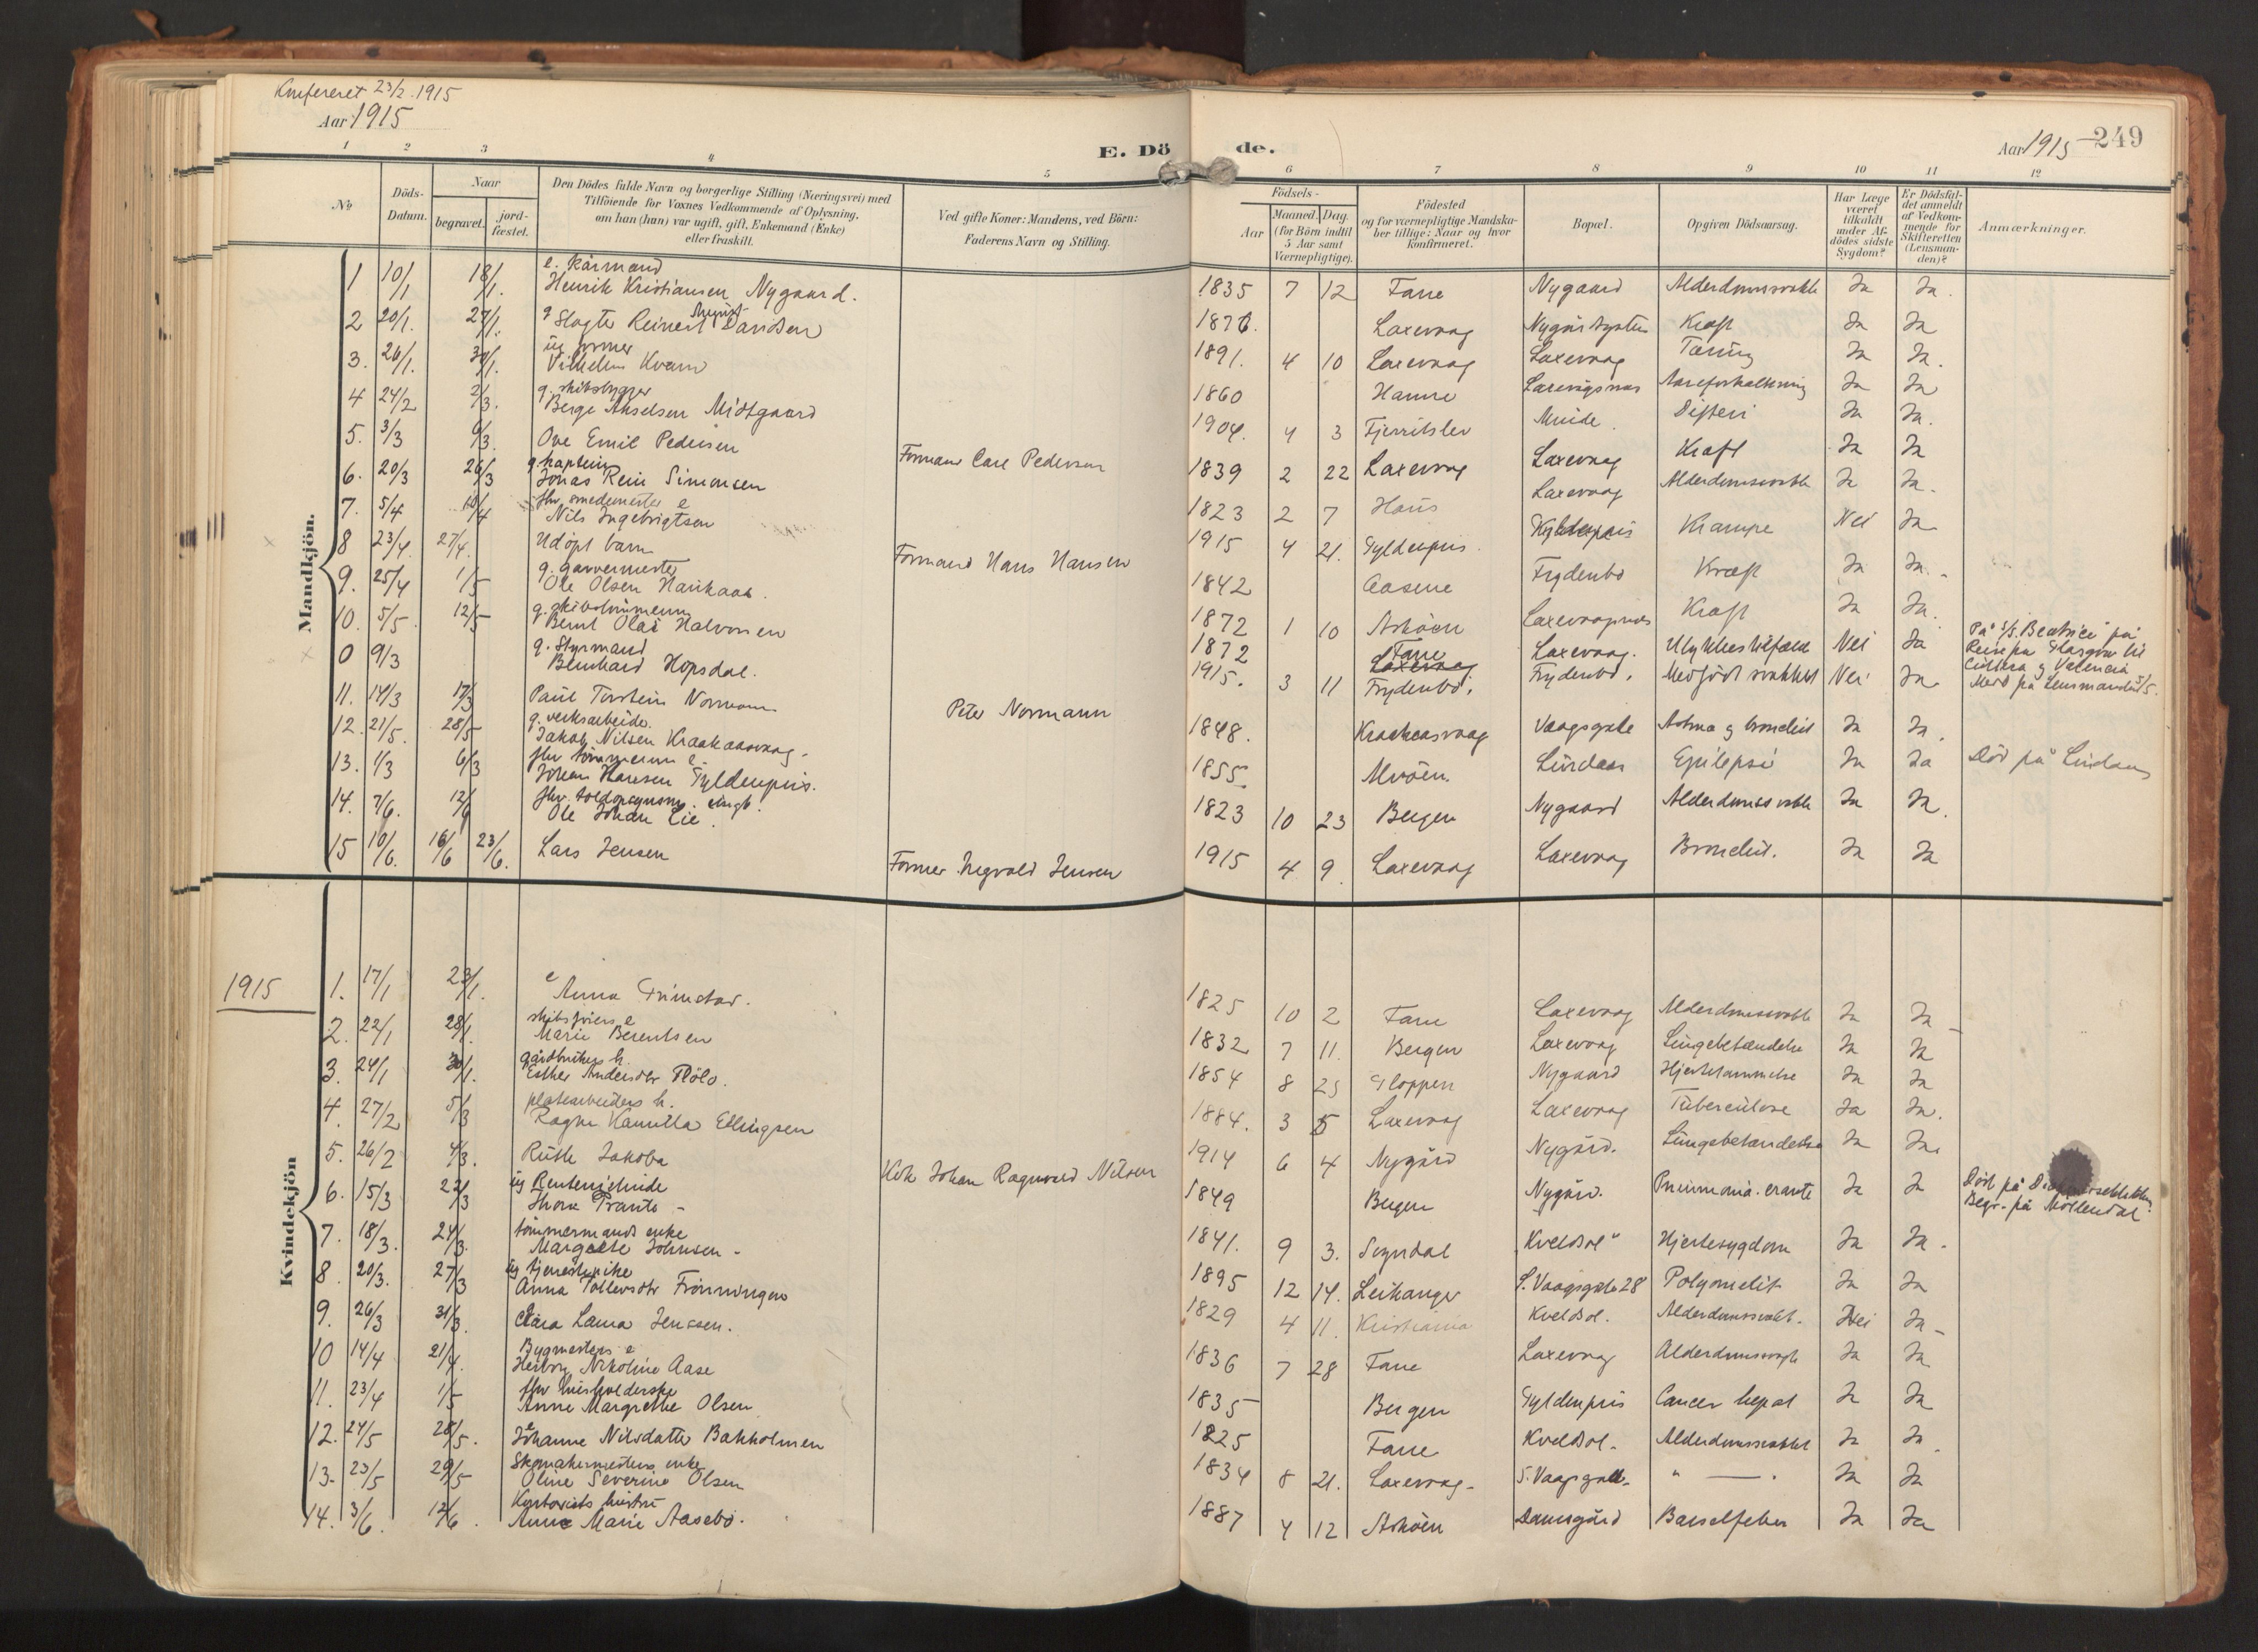 Konfereret 23/2 1915
Aar 1915
E. Dö de.
Aar 1915 249
1 2 3 4 5 6 7 8 9 10 11 12
No
Döds-Datum.
Naar
begravet. jord-fæstet.
Den Dödes fulde Navn og borgerlige Stilling (Næringsvei) med
Tilföiende for Voxnes Vedkommende af Oplysning,
om han (hun) var ugift, gift, Enkemand (Enke)
eller fraskilt.
Ved gifte Koner: Mandens, ved Börn:
Faderens Navn og Stilling.
Födsels-
Aar Maaned. Dag.
(for Börn indtil
5 Aar samt
Værnepligtige).
Födested
og for værnepligtige Mandska-
ber tillige: Naar og hvor
konfirmeret.
Bopæl.
Opgiven Dödsaarsag.
Har Læge
været
tilkaldt
under Af-
dödes sidste
Sygdom?
Er Dödsfal-
det anmeldt
af Vedkom-
mende for
Skifteretten
(Lensman-
den)?
Anmærkninger.
Mandkjön.
1 10/1 18/1. e. kårmand
Henrik Kristiansen Nygaard. 1835 7 12 Fane Nygaard Alderdomssvakh Ja Ja.
2 20/1. 27/1. g Slagter Reinert Davidsen 1876. Laxevaag Kræft Ja Ja
3. 26/1. 30/1. ug former
Vilhelm Kvam 1891. 4 10 Laxevaag Laxevaag Tæring Ja Ja.
4 24/2 2/3. g. skibsbygger
Berge Akselsen Midtgaard 1860 Hamre Laxevågsnes Aareforkalkning Ja Ja
5. 3/3 9/3. Ove Emil Pedersen Formand Carl Pedersen 1904. 4 3 Fjerritslev Minde. Difteri Ja Ja.
6. 20/3 26/3 g. kaptein
Jonas Rein Simonsen 1839 2 22 Laxevaag Laxevaag Kræft Ja Ja
7. 5/4 10/4 fhv. smedemester e
Nils Ingebrigtsen 1823 2 7 Haus Laxevaag Alderdomssvakh Ja Ja.
8 23/4. 27/4. Udöpt barn Formand Hans Hansen 1915 4 21. Gyldenpris. Gyldenpris Krampe Nei Ja
9. 25/4 1/5 g. garvermester
Ole Olsen Haukaas. 1842 Aasene Frydenbö Kræft Ja Ja.
10. 5/5. 12/5 g. skibstömmerm
Bernt Olai Halvorsen 1872 1 10 Asköen Laxevaagnes Kræft Ja Ja.
0 9/3 g. Styrmand
Bernhard Hopsdal. 1872 Fane Laxevaag. Ulykkestilfælde Nei Ja På S/S. Beatrice på
Reise fra Glasgow til
Cullera g Valencia
Meld. fra Lensmanden 5/5.
11. 14/3 17/3 Paul Torstein Normann Peter Normann 1915. 3 11 Frydenbö. Frydenbö. Medfödt svakhet Nei Ja
12. 21/5. 28/5 g. verksarbeider.
Jakob Nilsen Kraakaasvaag. 1848. Kraakaasvaag Vaagsgate Astma g bronchit Ja Ja.
13. 1/3 6/3 fhv tömmerm e.
Johan Hansen Gyldenpris. 1855 Alvöen. Lindaas Epilepsi Ja Ja Död på Lindaas
14. 7/6. 12/6 fhv. toldopsynsm. 
Ole Johan Lie. 1823 10 23 Bergen Nygaard Alderdomssvakh Ja Ja.
15 10/6. 16/6 23/6. Lars Jensen Former Ingvald Jensen 1915 4 9. Laxevaag Laxevaag Bronchit. Ja Ja
1915
Kvindekjön
1. 17/1 23/1. e Anna Grimstad. 1825 10 2 Fane Laxevaag Alderdomssvakh Ja Ja
2. 22/1 28/1. skibsförers e
Marie Berentsen 1832 7 11. Bergen Laxevaag Lungebetændelse Ja Ja
3. 24/1 30/1. gårdbrukers h.
Esther Andersdtr Flölo. 1854 8 25 Gloppen Nygaard Hjertelammelse Ja Ja
4. 27/2 5/3 platearbeiders h.
Ragna Kamilla Ellingsen 1884. 3 5 Laxevaag Laxevaag Tuberculose Ja Ja.
5. 26/2 4/3. Ruth Jakoba Kok Johan Ragnvald Nilsen 1914 6 4 Nygård Nygård. Lungebetændelse Ja Ja.
6. 15/3 22/3 ug Rentenistinde
Thora Prante - 1849 Bergen Nygård. Ja Ja Död på
Begr. på Möllendal
7. 18/3. 24/3. tömmermands enke
Margrete Johnsen - 1841. 9 3. Sogndal "Kveldsol" Hjertesygdom Ja Ja.
8. 20/3. 27/3 ug tjenestepike
Anna Tollevsdtr Frönningen 1895 12 14. Leikanger S. Vaagsgate 28 Polyomelit Ja Ja
9. 26/3 31/3. Clara Laura Jenssen. 1829 4 11. Kristiania Kveldsol. Alderdomssvakt. Nei Ja
10 14/4 21/4. Bygmesters e
Herborg Nikoline Aase 1836 7 28 Fane Laxevaag Alderdomssvagh Ja Ja
11. 23/4 1/5 fhv husholderske
Anne Margrethe Olsen 1835 Bergen Gyldenpris Cancer hepat Ja Ja
12. 24/5 28/5. Johanne Nilsdatter Bakholmen 1825 Fane Kveldsol. Alderdomssvakhet Ja Ja.
13. 23/5 29/5 Skomakermesters enke
Oline Severine Olsen 1834 8 21. Laxevaag. S. Vaagsgate. " — " Ja Ja
14. 3/6. 12/6. Kontorists hustru
Anne Marie Aasebö. 1887 4 12 Asköen Damsgård Barselfeber Ja Ja